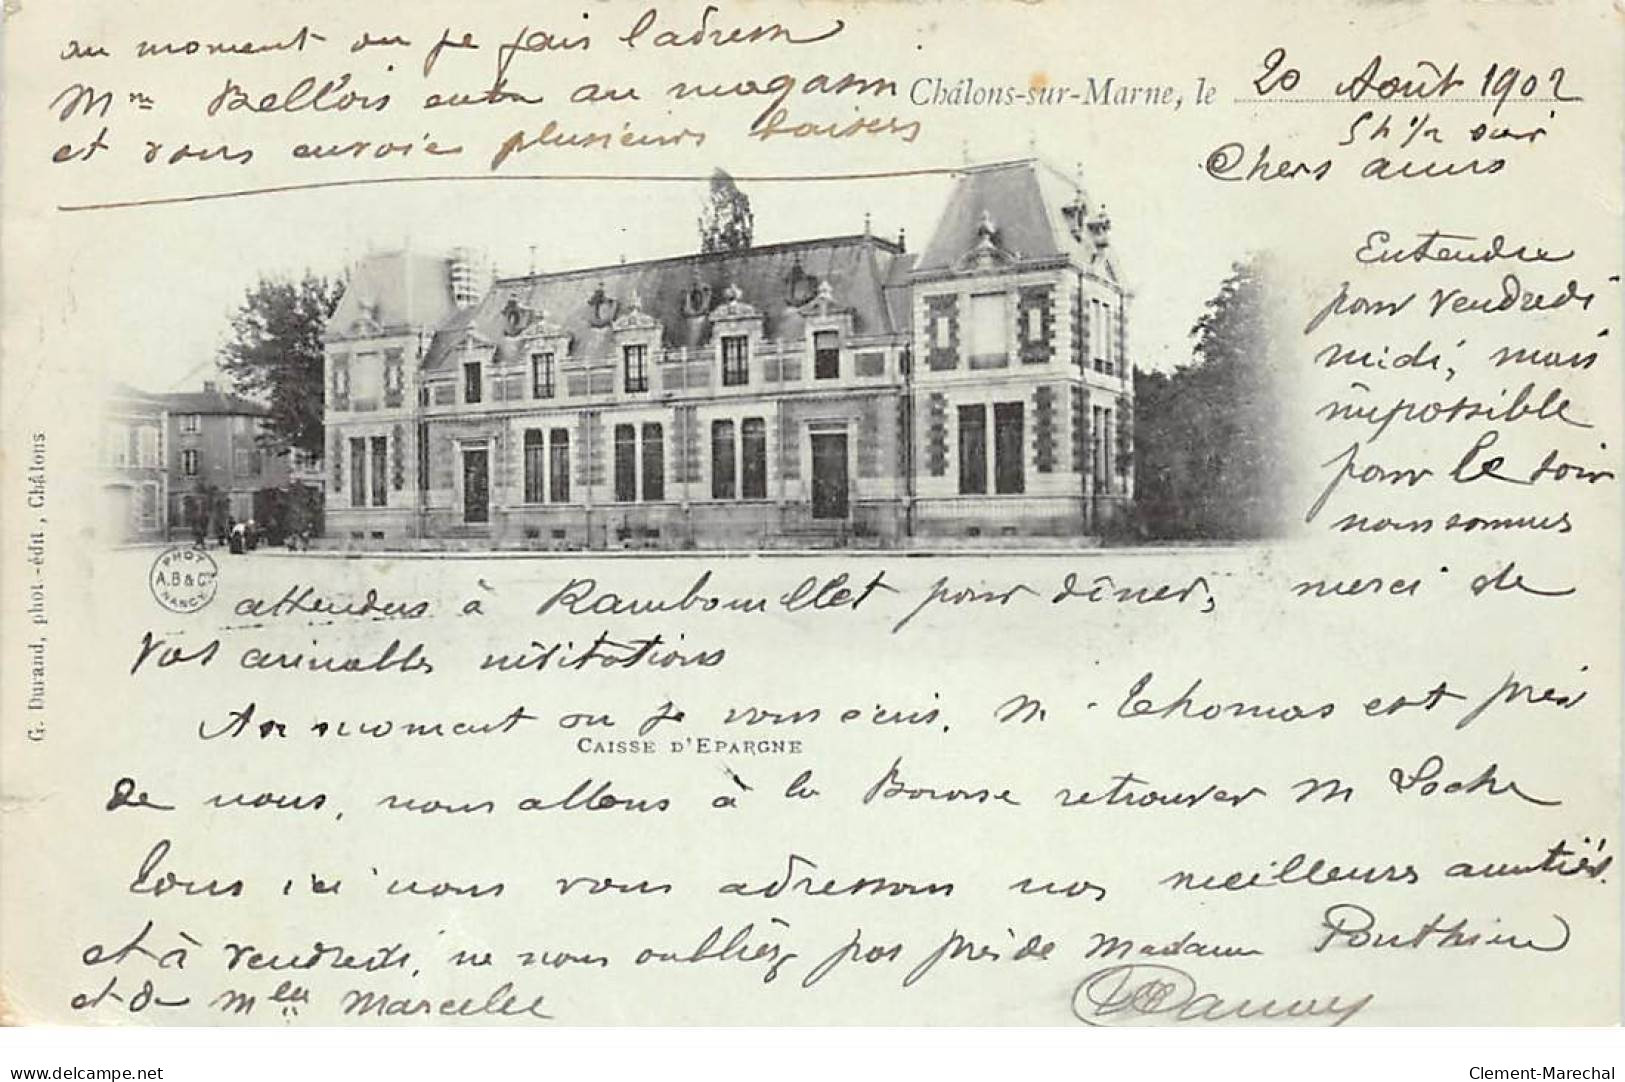 au moment ou je fais l'adresse
Mme Bellois entre au magasin
et vous envoie plusieurs baisers
Châlons-sur-Marne, le 20 Août 1902
5h 1/2 soir
Chers amis
Entendu
pour vendredi
midi, mais
impossible
pour le soir
nous sommes
attendus à Rambouillet pour dîner, merci de
vos aimables invitations
Au moment ou je vous écris, M. Thomas est près
CAISSE D'EPARGNE
de nous, nous allons à la Bourse retrouver M Loche
Tous ici nous vous adressons nos meilleures amitiés
et à vendredi, ne nous oubliez pas près de Madame Ponthieu
et de Melle Marcelle
G. Durand, phot.-édit, Châlons
PHOT
A.B & Cie
NANCY
Clement-Marechal
www.delcampe.net